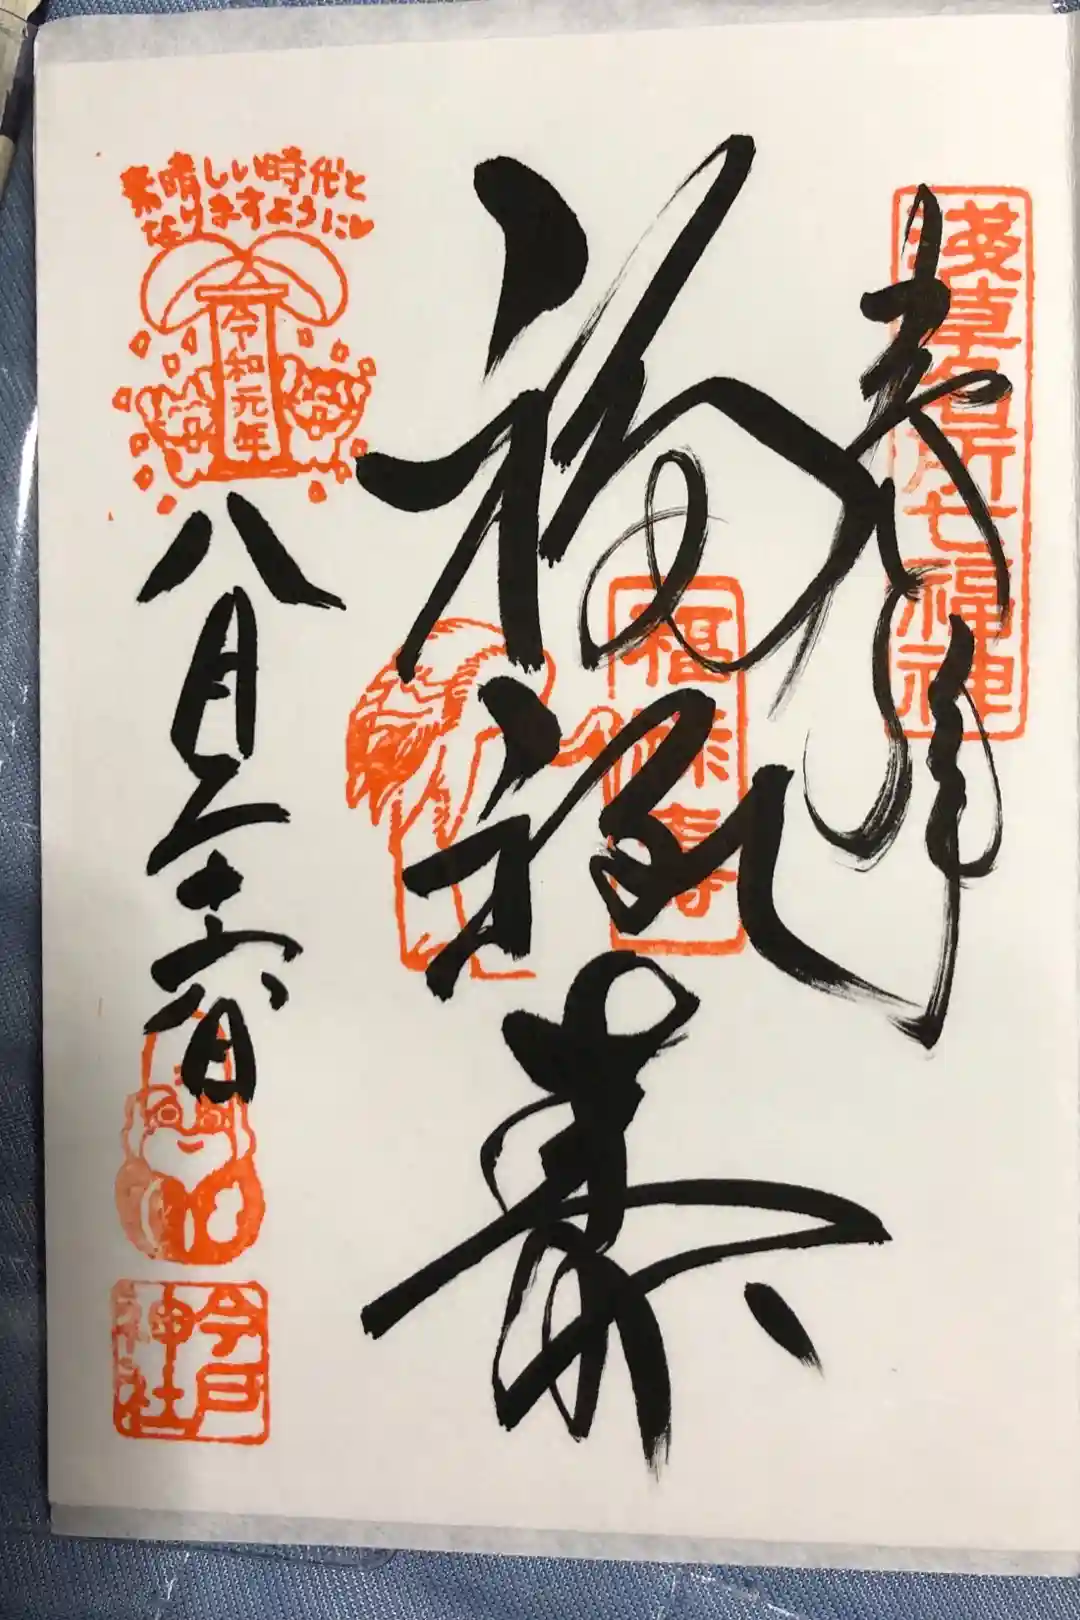 浅草名所七福神
奉拝
福禄寿
福禄寿
素晴しい時代と
なりますように♥
令和元年
八月二十六日
今戸
神社